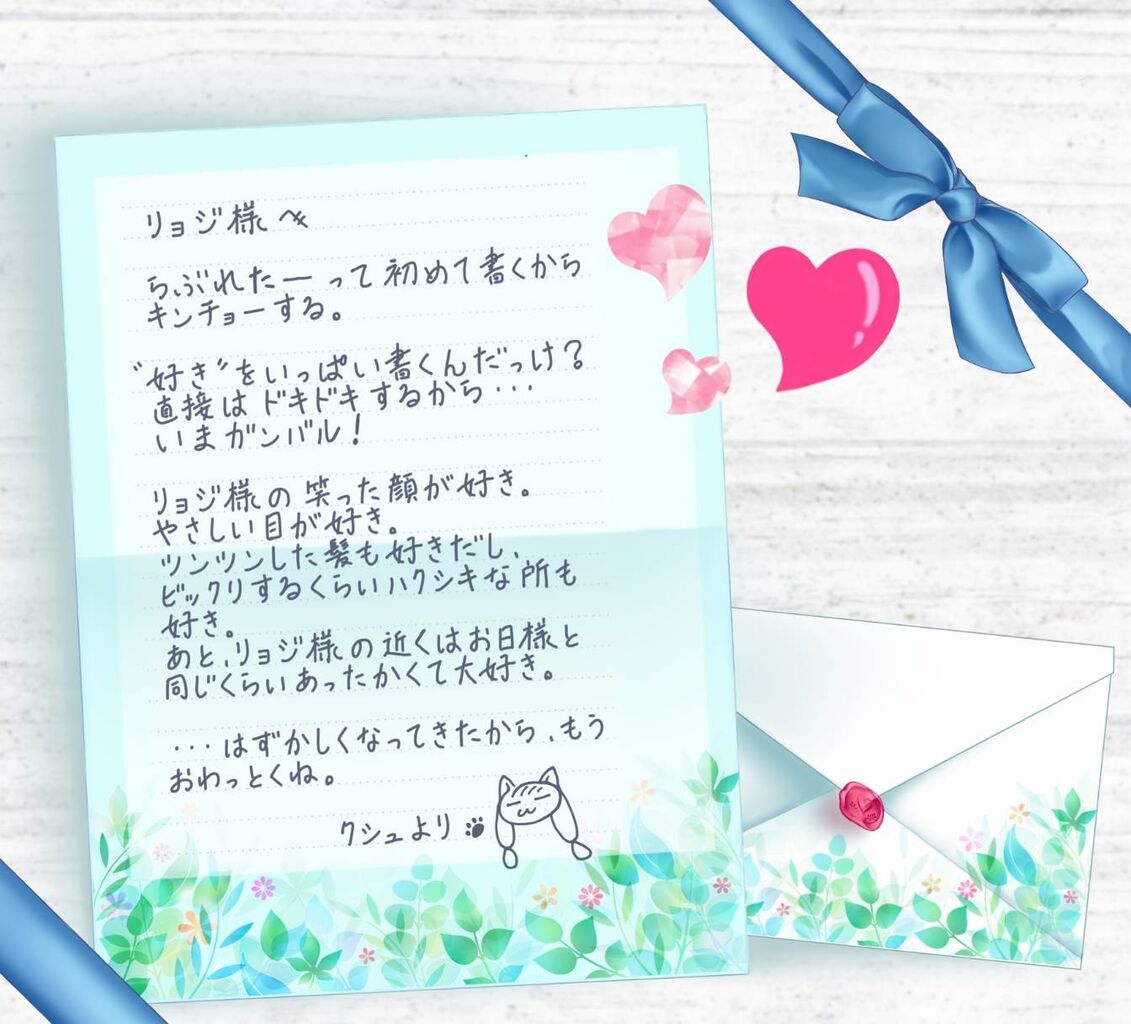 リョジ様へ
らぶれたーって初めて書くから
キンチョーする。
“好き”をいっぱい書くんだっけ？
直接はドキドキするから・・・
いまガンバル！
リョジ様の笑った顔が好き。
やさしい目が好き。
ツンツンした髪も好きだし、
ビックリするくらいハクシキな所も
好き。
あと、リョジ様の近くはお日様と
同じくらいあったかくて大好き。
・・・はずかしくなってきたから、もう
おわっとくね。
クシュより